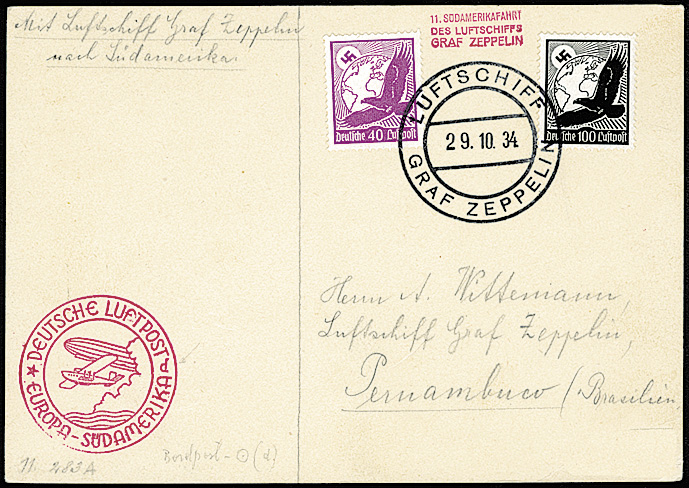 Mit Luftschiff Graf Zeppelin
nach Südamerika.
11. SÜDAMERIKAFAHRT
DES LUFTSCHIFFS
GRAF ZEPPELIN
Deutsche 40 Luftpost
Deutsche 100 Luftpost
LUFTSCHIFF
29.10.34
GRAF ZEPPELIN
Herrn A. Wittemann,
Luftschiff Graf Zeppelin,
Pernambuco / Brasilien
DEUTSCHE LUFTPOST
EUROPA-SÜDAMERIKA
11. 283A
Bordpost-